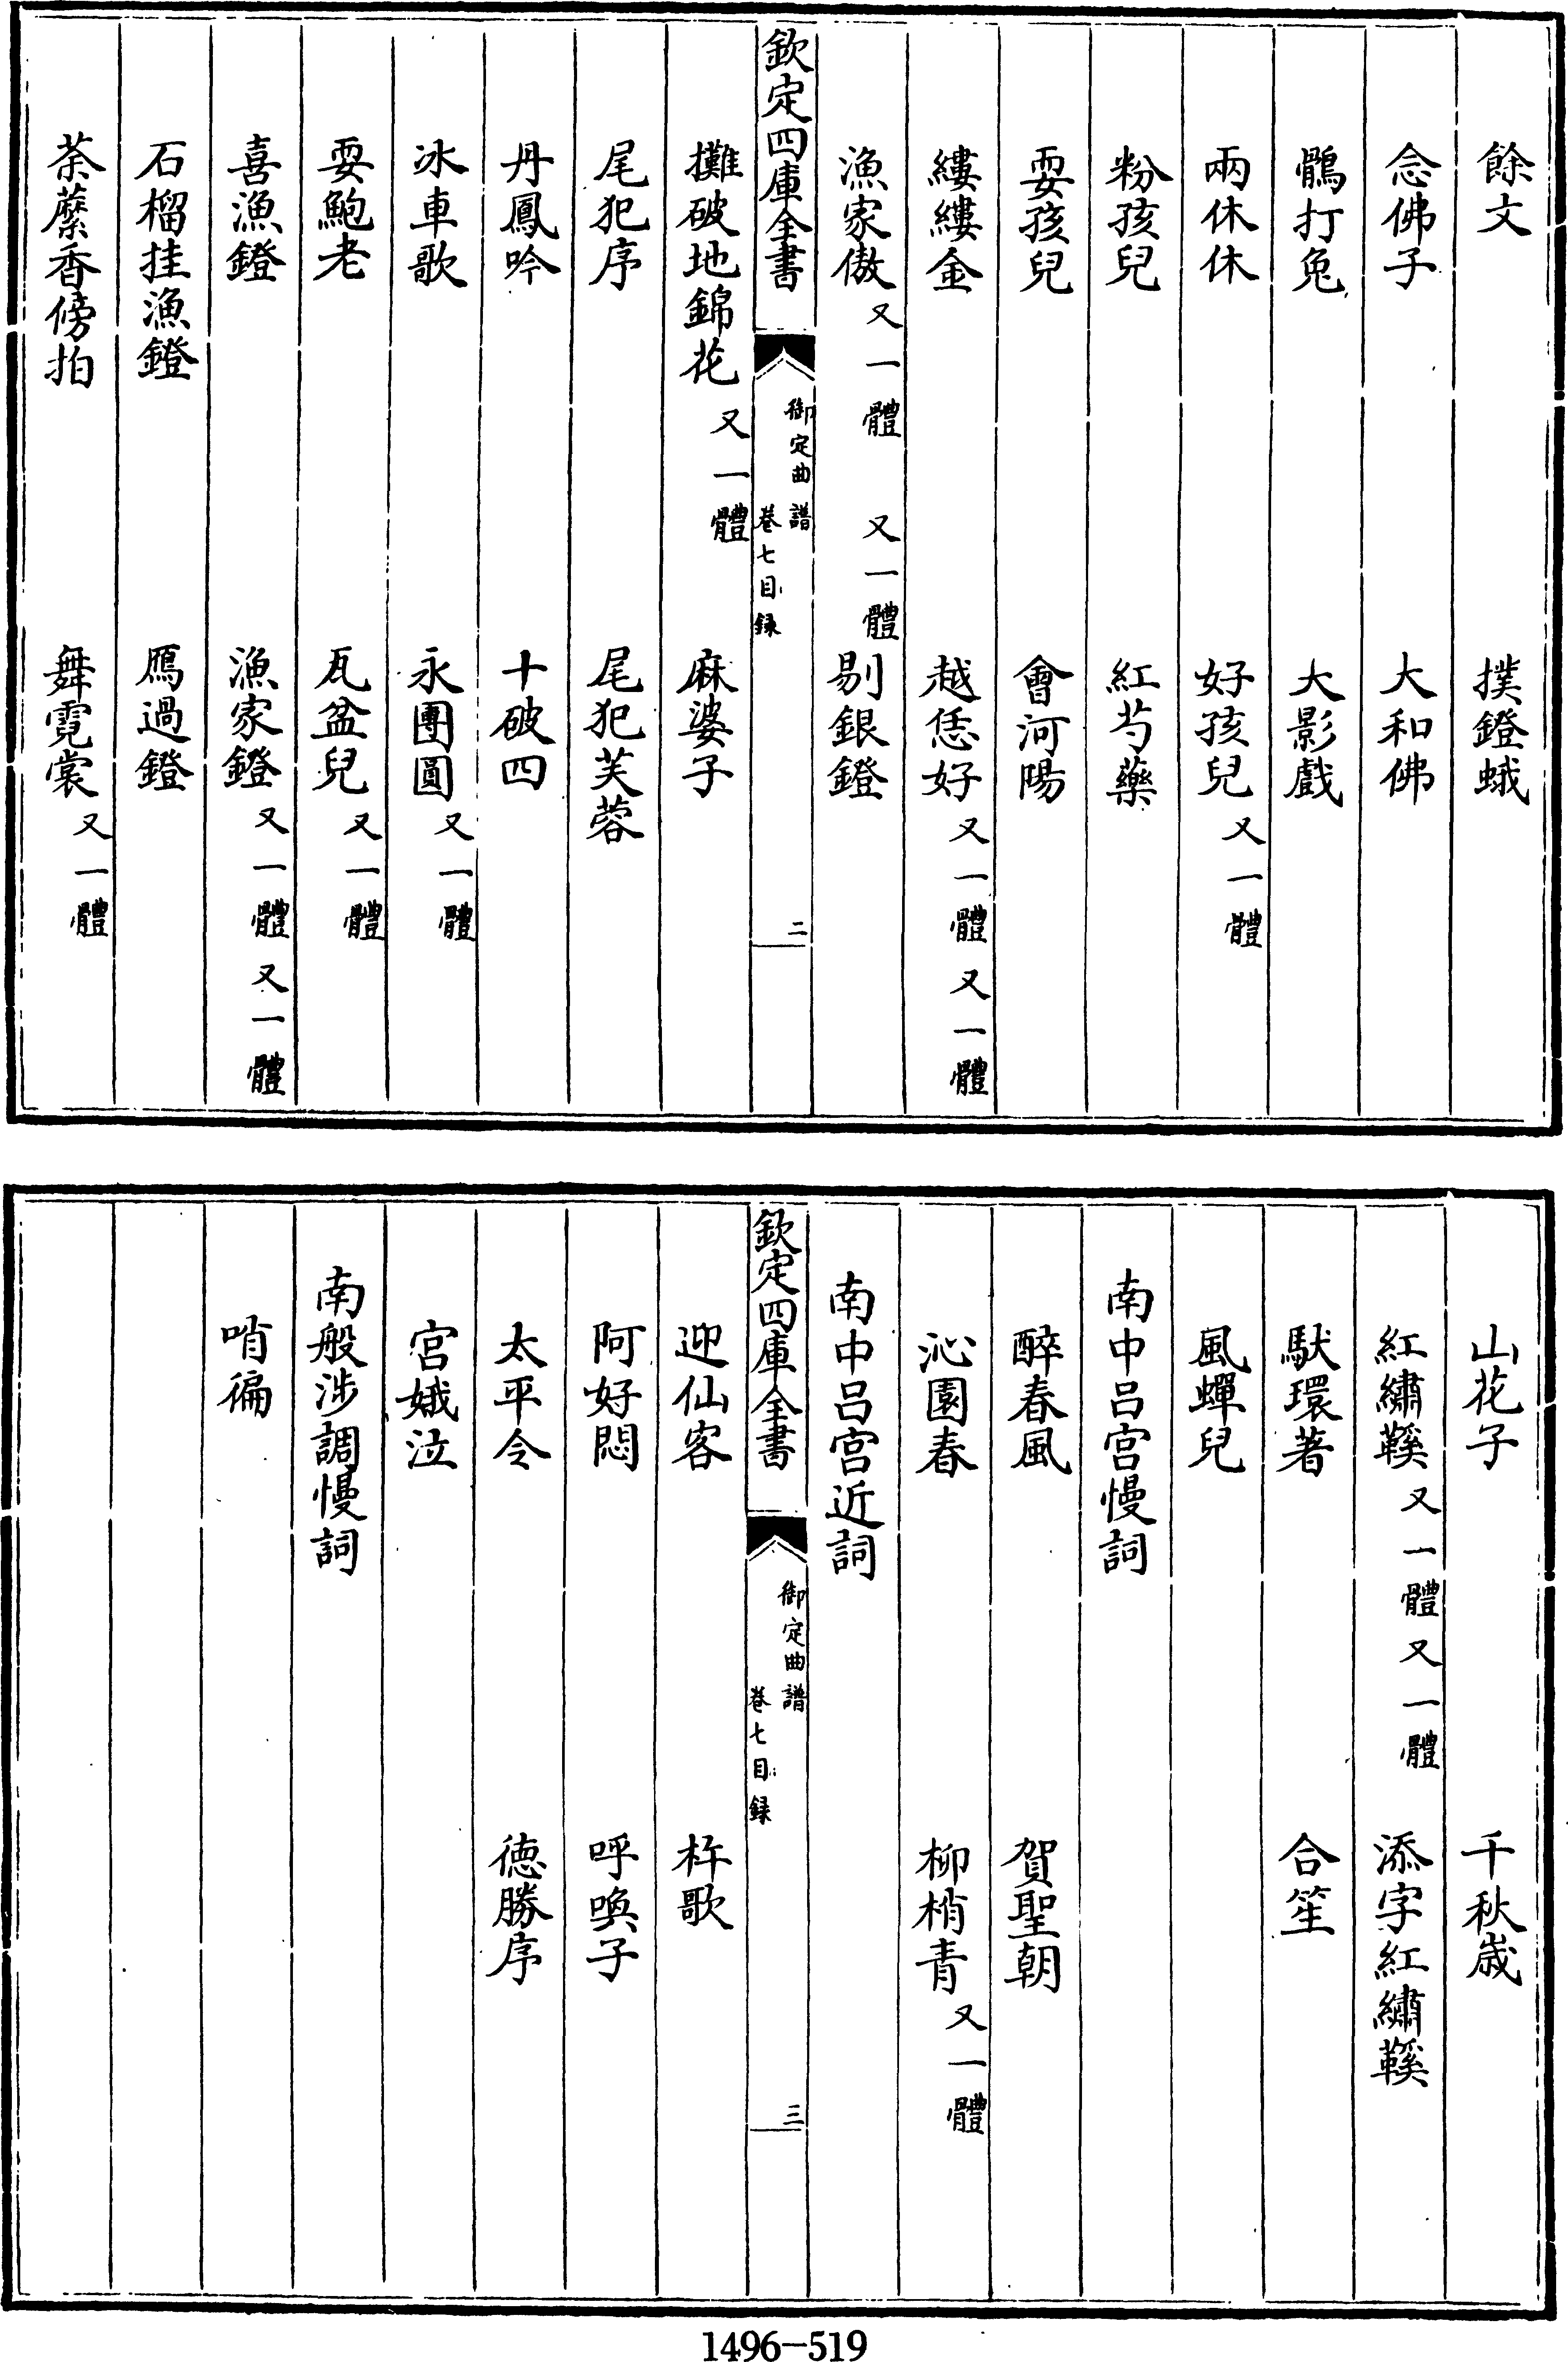 餘文　撲鐙蛾
念佛子　大和佛
鶻打兔　大影戲
兩休休　好孩兒又一體
粉孩兒　紅芍藥
耍孩兒　會河陽
縷縷金　越恁好又一體又一體
漁家傲又一體　又一體　剔銀鐙
欽定四庫全書
御定曲譜
卷七目録
二
攤破地錦花又一體　麻婆子
尾犯序　尾犯芙蓉
丹鳳吟　十破四
冰車歌　永團圓又一體
耍鮑老　瓦盆兒又一體
喜漁鐙　漁家鐙又一體又一體
石榴挂漁鐙　鴈過鐙
荼蘼香傍拍　舞霓裳又一體
山花子　千秋歲
紅繡鞵又一體又一體　添字紅繡鞵
馱環著　合笙
風蟬兒
南中呂宮慢詞
醉春風　賀聖朝
沁園春　柳梢青又一體
南中呂宮近詞
欽定四庫全書
御定曲譜
卷七目録
三
迎仙客　杵歌
阿好悶　呼喚子
太平令　德勝序
宮娥泣
南般涉調慢詞
哨徧
1496-519